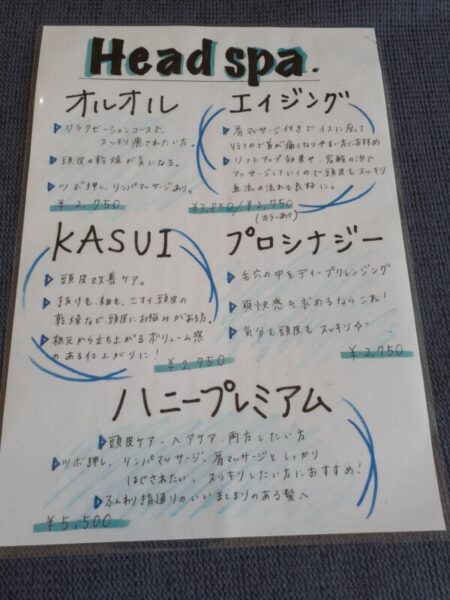 Head spa.
オルオル
▷リラクゼーションコースで、
スッキリ癒されたい方。
▷頭皮の乾燥が気になる。
▷ツボ押し、リンパマッサージあり。
¥2,750
エイジング
▷肩マッサージ付きでイスに座って
行うので首が痛くなりやすい方におすすめ
▷リフトアップ効果や、炭酸の泡で
マッサージしていくので頭皮もスッキリ
血流の流れも良好に。
¥3,850/¥2,750
(カラーあり)
KASUI
▷頭皮改善ケア。
▷抜け毛、細毛、ニオイ、頭皮の
乾燥など、頭皮にお悩みがある方。
▷根元から立ち上がるボリューム感
のある仕上がりに!
¥2,750
プロシナジー
▷毛穴の中をディープクレンジング
▷爽快感を求めるならこれ!
▷気分も頭皮もスッキリ☆
¥2,750
ハニープレミアム
▷頭皮ケア・ヘアケア・両方したい方
▷ツボ押し、リンパマッサージ、肩マッサージとしっかり
ほぐされたい、スッキリしたい方におすすめ!
▷ふんわり指通りのいいまとまりのある髪へ
¥5,500